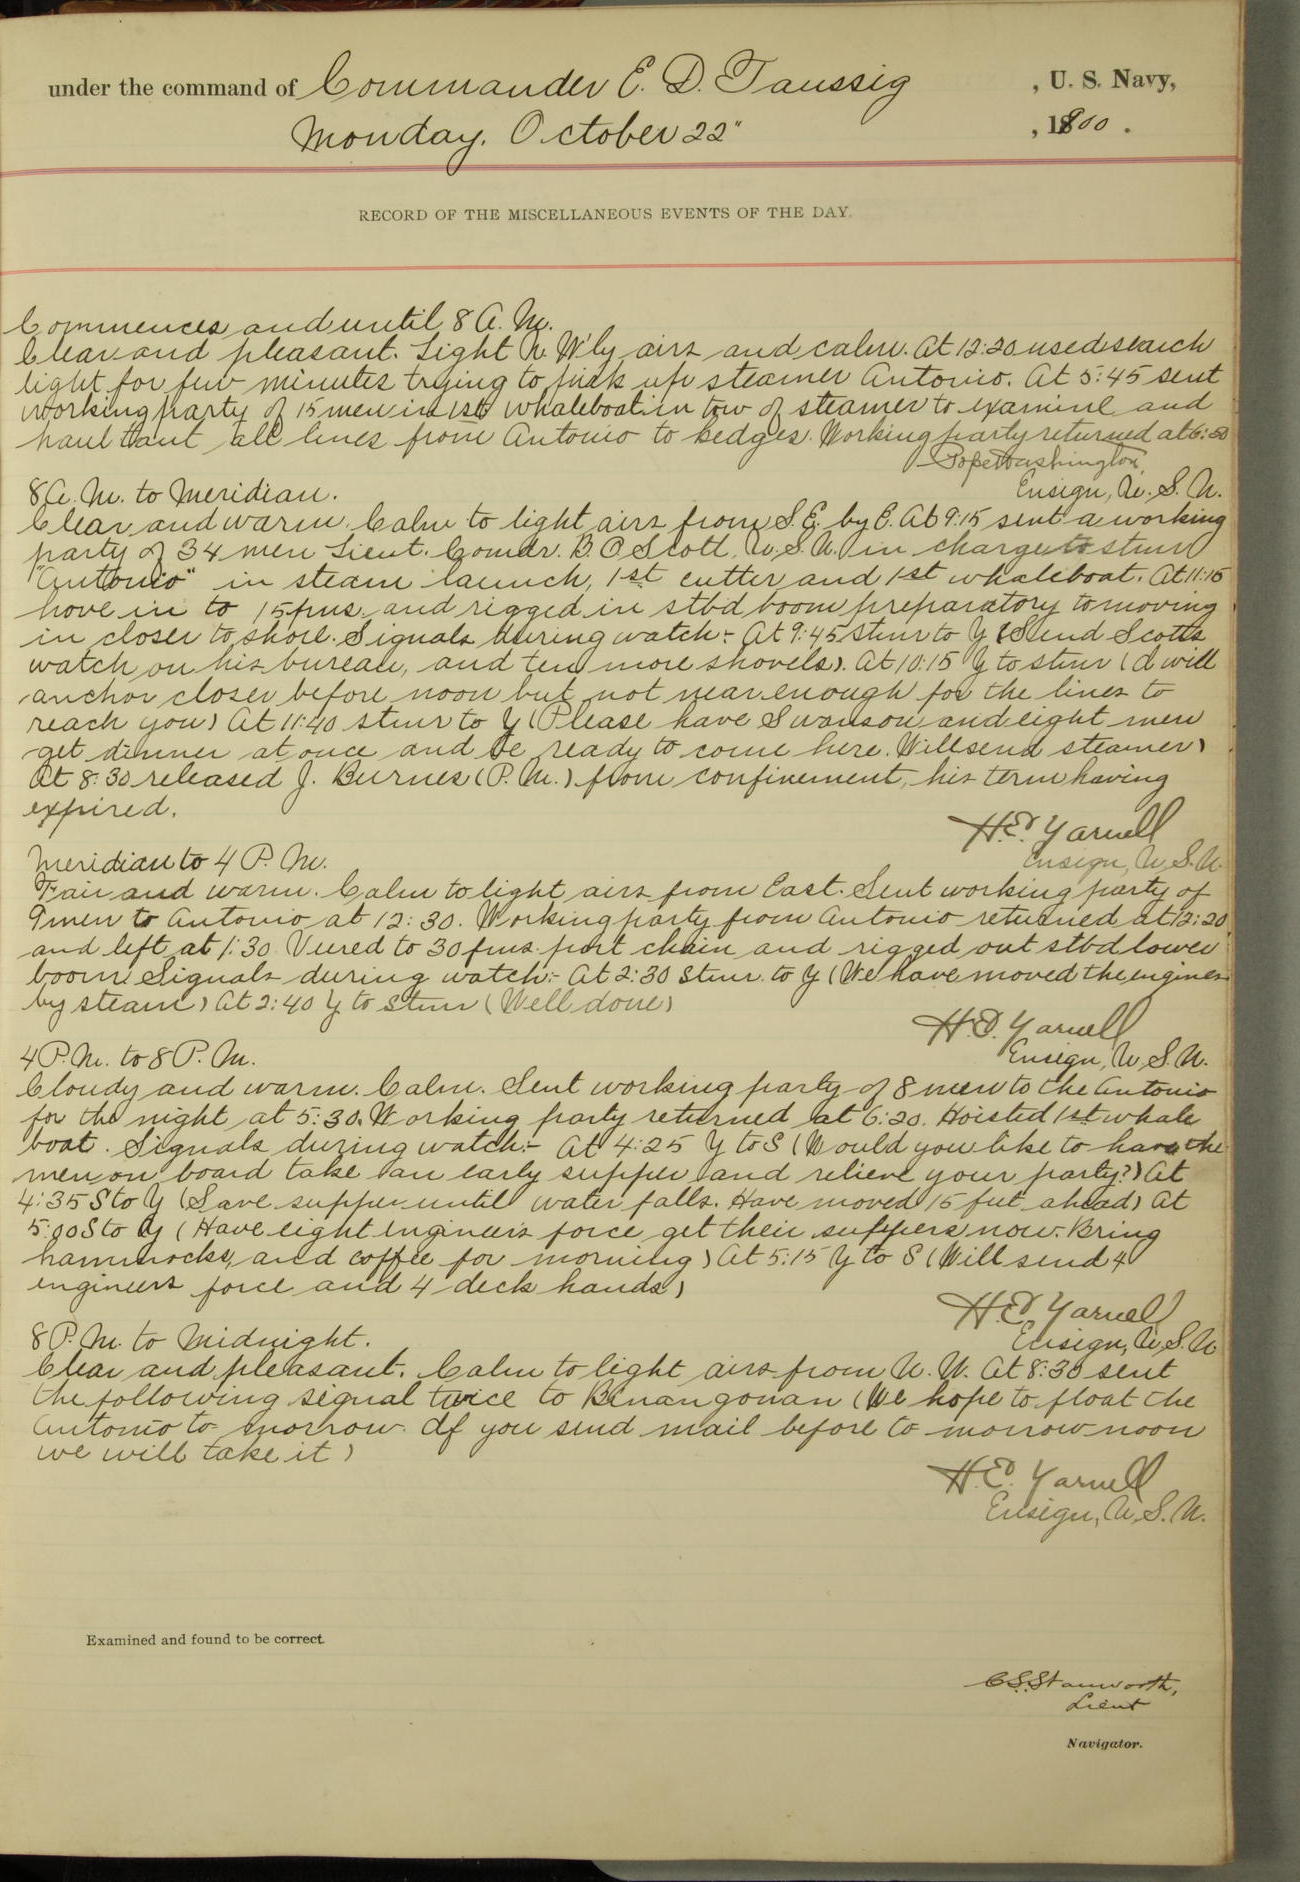 under the command of Commander E. D. Taussig , U. S. Navy,
Monday, October 22" , 1900 .
RECORD OF THE MISCELLANEOUS EVENTS OF THE DAY.
Commences and until 8 A. M.
Clear and pleasant. Light N. W'ly airs and calm. At 12:20 used search
light for few minutes trying to pick up steamer Antonio. At 5:45 sent
working party of 15 men in 1st whaleboat in tow of steamer to examine and
haul taut all lines from Antonio to kedges. Working party returned at 6:50
Pope Washington,
8 A. M. to Meridian.
Ensign, U. S. N.
Clear and warm. Calm to light airs from S. E. by E. At 9:15 sent a working
party of 34 men Lieut. Comdr. B. O Scott, U. S. N. in charge to stmr
"Antonio" in steam launch, 1st cutter and 1st whaleboat. At 11:15
hove in to 15 fms. and rigged in stbd boom preparatory to moving
in closer to shore. Signals during watch:- At 9:45 Stmr to Y (Send Scotts
watch on his bureau, and ten more shovels). At 10:15 Y to stmr (I will
anchor closer before noon but not near enough for the lines to
reach you) At 11:40 stmr to Y (Please have Swanson and eight men
get dinner at once and be ready to come here. Will send steamer)
At 8:30 released J. Burnes (P. M.) from confinement, his term having
expired.
H. E. Yarnell
Meridian to 4 P. M.
Ensign, U. S. N.
Fair and warm. Calm to light airs from East. Sent working party of
9 men to Antonio at 12:30. Working party from Antonio returned at 12:20
and left at 1:30 Veered to 30 fms. port chain and rigged out stbd lower
boom. Signals during watch:- At 2:30 Stmr. to Y (We have moved the engines
by steam) At 2:40 Y to Stmr (Well done)
H. E. Yarnell
4 P. M. to 8 P. M.
Ensign, U. S. N.
Cloudy and warm. Calm. Sent working party of 8 men to the Antonio
for the night at 5:30. Working party returned at 6:20. Hoisted 1st whale
boat. Signals during watch:- At 4:25 Y to S (Would you like to have the
men on board take an early supper and relieve your party?) At
4:35 S to Y (Save supper until water falls. Have moved 15 feet ahead) At
5:00 S to Y (Have eight Engineers force get their suppers now. Bring
hammocks, and coffee for morning) At 5:15 Y to S (Will send 4
engineers force and 4 deck hands)
H. E. Yarnell
8 P. M. to Midnight.
Ensign, U. S. N.
Clear and pleasant. Calm to light airs from N. W. At 8:30 sent
the following signal twice to Binangonan (We hope to float the
Antonio to-morrow. If you send mail before to-morrow noon
we will take it)
H. E. Yarnell
Ensign, U. S. N.
Examined and found to be correct.
C. S. Stanworth,
Lieut
Navigator.